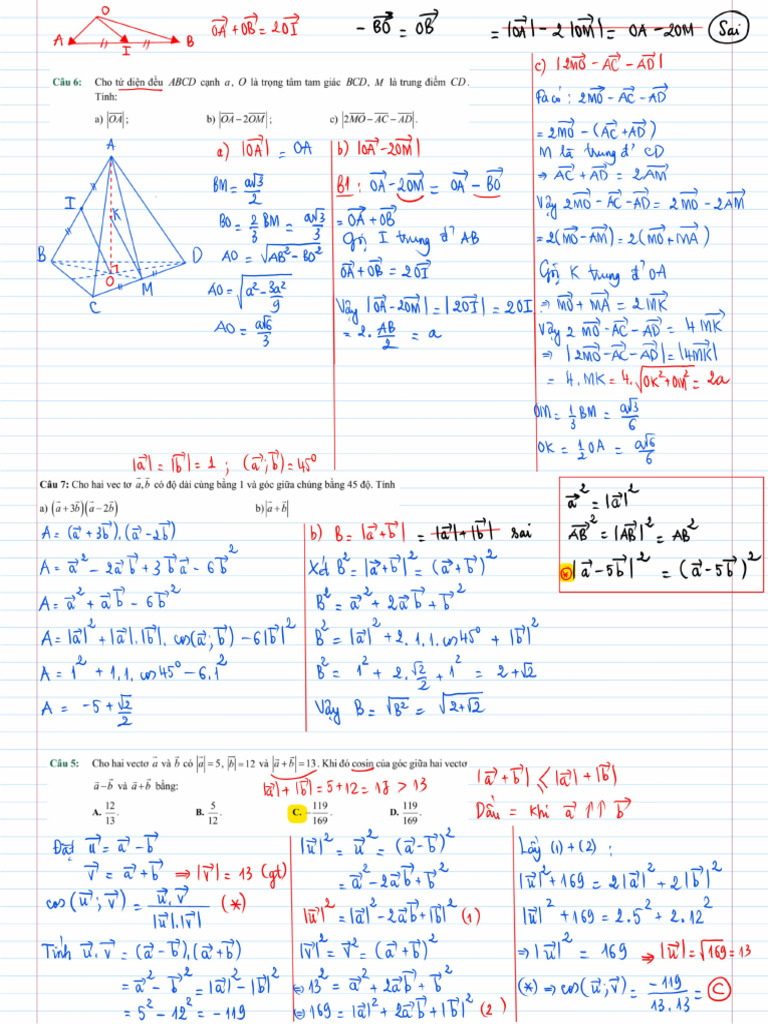 O
A I B
OA + OB = 2OI
- BO = OB
= |OA| - 2|OM| = OA - 2OM Sai
Câu 6: Cho tứ diện đều ABCD cạnh a, O là trọng tâm tam giác BCD, M là trung điểm CD.
Tính:
a) |OA| ; b) |OA - 2OM| ; c) |2MO - AC - AD|.
A
I
K
B
D
O
M
C
a) |OA| = OA
BM = a√3/2
BO = 2/3 BM = a√3/3
AO = √(AB² - BO²)
AO = √(a² - 3a²/9)
AO = a√6/3
b) |OA - 2OM|
B1 : OA - 2OM = OA - BO
= OA + OB
Gọi I trung đ' AB
OA + OB = 2OI
Vậy |OA - 2OM| = |2OI| = 2OI
= 2. AB/2 = a
c) |2MO - AC - AD|
Ta có : 2MO - AC - AD
= 2MO - (AC + AD)
M là trung đ' CD
⇒ AC + AD = 2AM
Vậy 2MO - AC - AD = 2MO - 2AM
= 2(MO - AM) = 2(MO + MA)
Gọi K trung đ' OA
⇒ MO + MA = 2MK
Vậy 2MO - AC - AD = 4MK
⇒ |2MO - AC - AD| = |4MK|
= 4.MK = 4.√(OK² + OM²) = 2a
OM = 1/3 BM = a√3/6
OK = 1/2 OA = a√6/6
|a| = |b| = 1 ; (a; b) = 45°
Câu 7: Cho hai vec tơ a, b có độ dài cùng bằng 1 và góc giữa chúng bằng 45 độ. Tính
a) (a + 3b)(a - 2b) b) |a + b|
A = (a + 3b).(a - 2b)
A = a² - 2ab + 3ba - 6b²
A = a² + ab - 6b²
A = |a|² + |a|.|b|.cos(a; b) - 6|b|²
A = 1² + 1.1.cos45° - 6.1²
A = -5 + √2/2
b) B = |a + b| = |a| + |b| sai
Xét B² = |a + b|² = (a + b)²
B² = a² + 2ab + b²
B² = |a|² + 2.1.1.cos45° + |b|²
B² = 1² + 2.√2/2 + 1² = 2 + √2
Vậy B = √B² = √(2 + √2)
a² = |a|²
AB² = |AB|² = AB²
* |a - 5b|² = (a - 5b)²
Câu 5: Cho hai vectơ a và b có |a| = 5, |b| = 12 và |a + b| = 13. Khi đó cosin của góc giữa hai vectơ
a - b và a + b bằng:
|a| + |b| = 5 + 12 = 17 > 13
A. 12/13. B. 5/12. C. -119/169. D. 119/169.
|a + b| ≤ |a| + |b|
Dấu = khi a ↑↑ b
Đặt u = a - b
v = a + b ⇒ |v| = 13 (gt)
cos(u; v) = u.v/|u|.|v| (*)
Tính u.v = (a - b).(a + b)
= a² - b² = |a|² - |b|²
= 5² - 12² = -119
|u|² = u² = (a - b)²
= a² - 2ab + b²
|u|² = |a|² - 2ab + |b|² (1)
|v|² = v² = (a + b)²
⇔ 13² = a² + 2ab + b²
⇔ 169 = |a|² + 2ab + |b|² (2)
Lấy (1) + (2) :
|u|² + 169 = 2|a|² + 2|b|²
|u|² + 169 = 2.5² + 2.12²
⇒ |u|² = 169 ⇒ |u| = √169 = 13
(*) ⇒ cos(u; v) = -119/13.13 = C